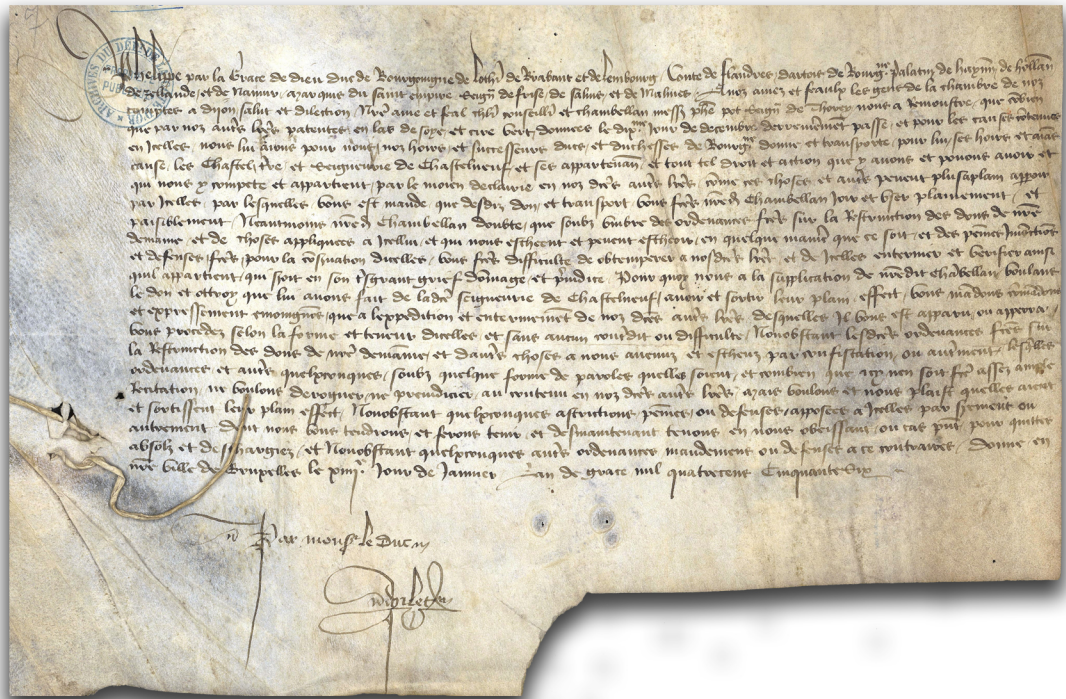 ARCHIVES DU DÉPT
PU
Phelippe par la grace de dieu duc de Bourgoingne de Lothr̃ de Brabant et de Lembourg, Conte de flandres, dartois de Bourgne palatin de haynñ de hollañ
de zellande, et de Namur, marquis du saint empire, Seignr̃ de frise, de salins, et de Malines. A noz amez et feaulx les gens de la chambre de noz
comptes a dijon salut et dilection. Nr̃e ame et feal chlr̃ conseillr̃ et chambellan messr̃ phẽ pot Seignr̃ de nous a Remonstre, que cõbien
que par noz autr̃s lr̃es patentes, en las de soye, et cire vert, donnees le Jour de decembre derrenierement passe, et pour les causes contenues
en Icelles, nous lui auons pour nous, noz hoirs, et successeurs ducs, et duchesses de Bourgne donne et transporte, pour lui, ses hoirs et aians
cause, les Chastel, tr̃re, et Seigneurie de Chastelneuf et ses appartenañ, et tout tel droit et action que y auons et pouons auoir et
qui nous y compete et appartient, par le moien declairie en noz dcẽs autr̃s lr̃es, cõme ces choses et autr̃s peuent plusaplain apparoir
par Icelles, par lesquelles, vous est mande que desdiz don, et transport, vous frẽs Chambellan Joir et vser plainement, et
paisiblement, Neantmoins Chambellan doubte, que soubz vmbre des ordenances frẽs sur la Restruction des dons de nr̃e
demaine, et de choses appliquees a Icellui, et qui nous escheent et peuent escheoir, en quelque manier̃ que ce soit, et des peines Iniunctions
et defenses, frẽs, pour la cõseruation dicelles, vous frẽs difficulte de obtemperer a nosdcẽs lr̃es, et de Icelles enteriner et verifier ainsi
quil appartient, qui seroit en son tr̃sgrant grief dõmage, et p̃iudice. Pour quoy nous a la supplication de nr̃edit chãbellan, voulans
le don et ottroy que lui auons fait de ladcẽ seigneurie de Chastelneuf, auoir et sortir leur plain effect, vous mãdons
et expressement enioingnõs, que a lexpedition et enterinement de noz dcẽs autr̃s lr̃es, desquelles Il vous est apparu, ou apperra,
vous procedez selon la forme et teneur dicelles, et sans aucun contredit ou difficulte, Nonobstant lesdcẽs ordenances frẽs sur
la Restruction des dons de nr̃e demaine, et dautr̃s choses a nous auenuz et escheuz par confiscation, ou autrement, lesquelles
ordenances, et autr̃s quelxconques, soubz quelque forme de paroles quelles soient, et combien que Icy nen soit fcẽ assez ample
Recitation, ne voulons deroguer, ne preiudicier, au contenu en noz dcẽs autr̃s lr̃es, mais voulons et nous plaist quelles aient
et sortissent leur plain effect, Nonobstant quelxconques astrictions, peines, ou defenses, apposees a Icelles par serement ou
autrement, dont nous vous tendrons et ferons tenir, et desmaintenant tenons, en nous obeissant, ou cas pñt, pour quittes
absolz et deschargiez, et Nonobstant quelxconques autr̃s ordenances, mandement ou defenses a ce contraires. Donne en
nr̃e ville de Bruxelles le xiiije Jour de Januier Lan de grace mil quatrecens Cinquante Six
Par monsr̃ le Duc